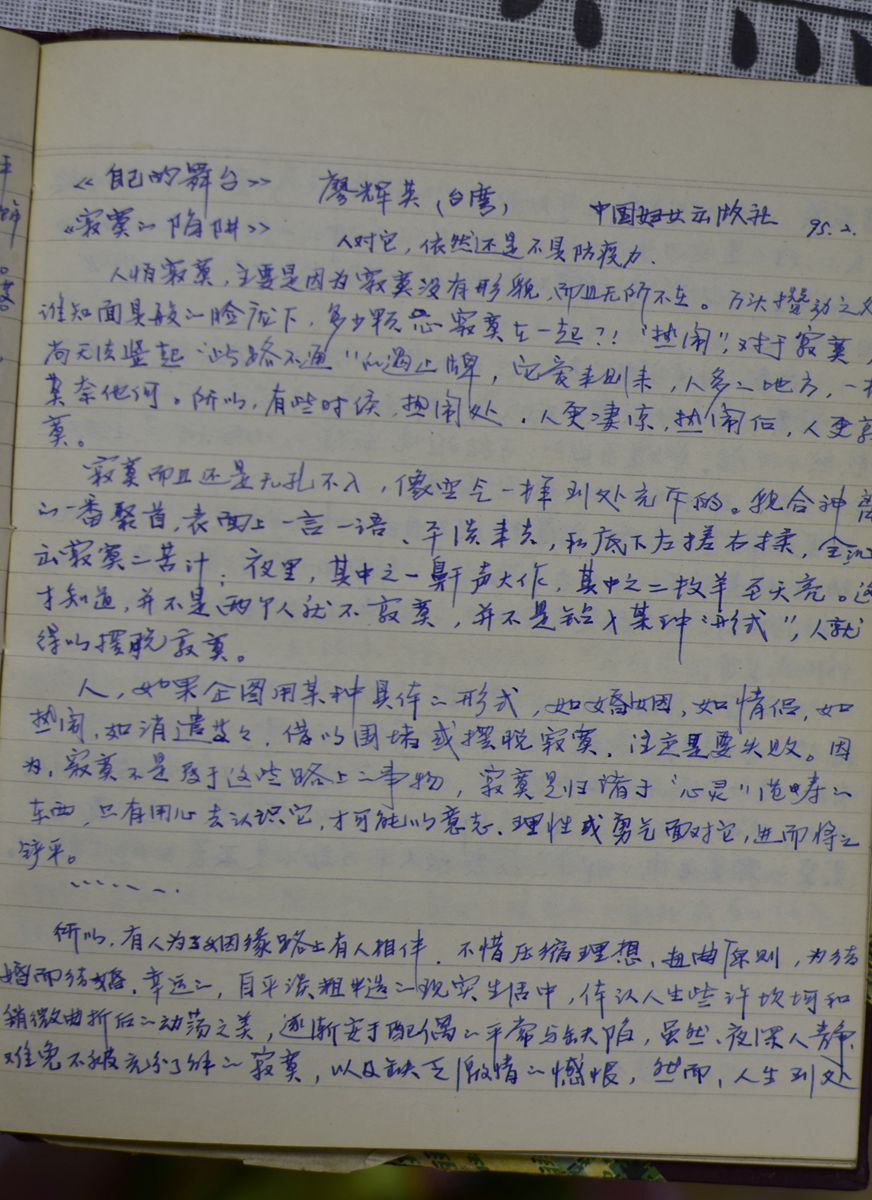 《自己的舞台》 廖辉英（台湾） 中国妇女出版社 95.2.
《寂寞的陷阱》 人对它，依然还是不具防疫力.
人怕寂寞，主要是因为寂寞没有形貌，而且无所不在。万头攒动之处
谁知面具般的脸底下，多少颗心寂寞在一起?!“热闹”，对于寂寞，
尚无法竖起“此路不通”的遏止牌，它爱来则来，人多的地方，一样
莫奈他何。所以，有些时候，热闹处，人更凄凉，热闹后，人更寂
寞。
寂寞而且还是无孔不入，像空气一样到处充斥的。貌合神离
的一番聚首，表面上一言一语、平淡来去，私底下左搓右揉，全
出寂寞的苦汁；夜里，其中之一鼾声大作，其中之二数羊至天亮。这
才知道，并不是两个人就不寂寞，并不是钻入某种“形式”，人就
得以摆脱寂寞。
人，如果企图用某种具体的形式，如婚姻，如情侣，如
热闹，如消遣等等，借以围堵或摆脱寂寞，注定是要失败。因
为，寂寞不是属于这些路上的事物，寂寞是归诸于“心灵”范畴的
东西，只有用心去认识它，才可能以意志、理性或勇气面对它，进而将之
铲平。
…….
所以，有人为了姻缘路上有人相伴，不惜压缩理想、扭曲原则，为结
婚而结婚，幸运的，自平淡粗糙的现实生活中，体认人生些许坎坷和
稍微曲折后的动荡之美，逐渐安于配偶的平常与缺陷，虽然、夜深人静，
难免不被充分了解的寂寞，以及缺乏激情的憾恨，然而，人生到处